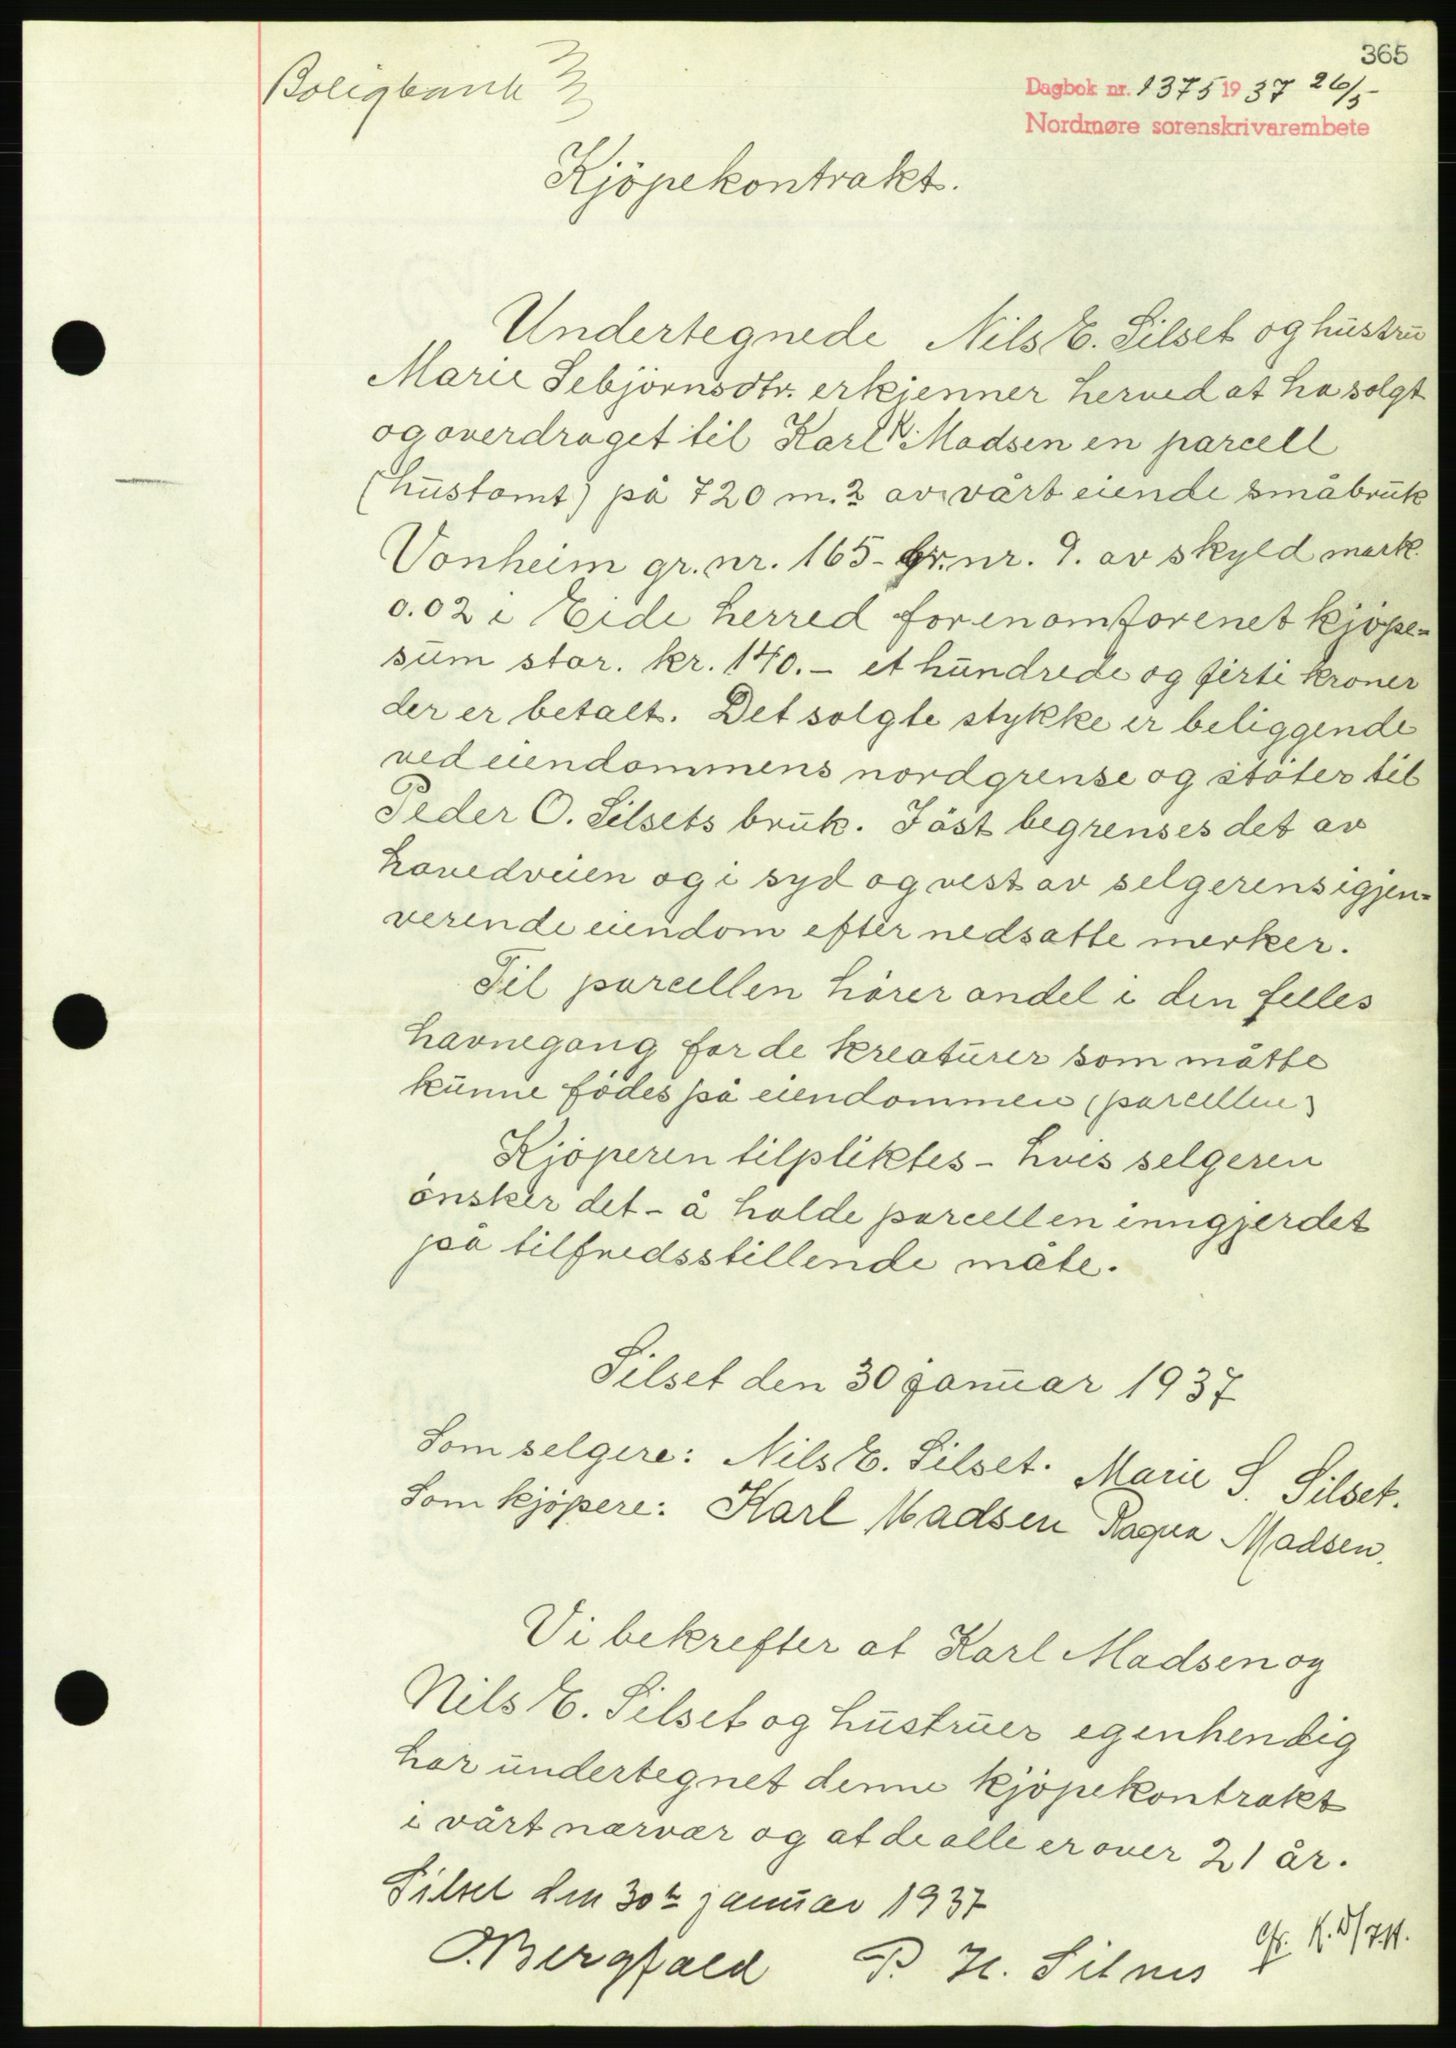 365
Boligbank
Dagbok nr. 1375 1937 26/5
Nordmøre sorenskrivarembete
Kjöpekontrakt.
Undertegnede Nils E. Silset og hustru
Marie Sebjörnsdtr. erkjenner herved at ha solgt
og overdraget til Karl K. Madsen en parcell
(hustomt) på 720 m.2 av vårt eiende småbruk
Vonheim gr. nr. 165 - br. nr. 9. av skyld mark.
0.02 i Eide herred for en omforenet kjöpe=
sum stor. kr. 140.- et hundrede og firti kroner
der er betalt. Det solgte stykke er beliggende
ved eiendommens nordgrense og stöter til
Peder O. Silsets bruk. I öst begrenses det av
hovedveien og i syd og vest av selgerens igjen=
verende eiendom efter nedsatte merker.
Til parcellen hörer andel i den felles
havnegang for de kreaturer som måtte
kunne födes på eiendommen (parcellen)
Kjöperen tilpliktes - hvis selgeren
önsker det - å holde parcellen inngjerdet
på tilfredsstillende måte.
Silset den 30 januar 1937
Som selgere: Nils E. Silset. Marie S. Silset.
Som kjöpere: Karl Madsen Ragna Madsen.
Vi bekrefter at Karl Madsen og
Nils E. Silset og hustruer egenhendig
har undertegnet denne kjöpekontrakt
i vårt nærvær og at de alle er over 21 år.
Silset den 30te januar 1937
O. Bergfald P. H. Silnes